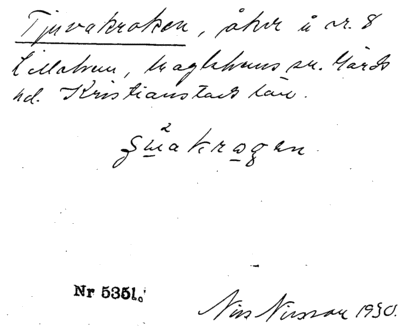 Tjuvakroken, åker å nr. 8
Lillehem, Maglehems sn. Gärds
hd. Kristianstads län.
Nr 5351.
Nils Nilsson 1930.